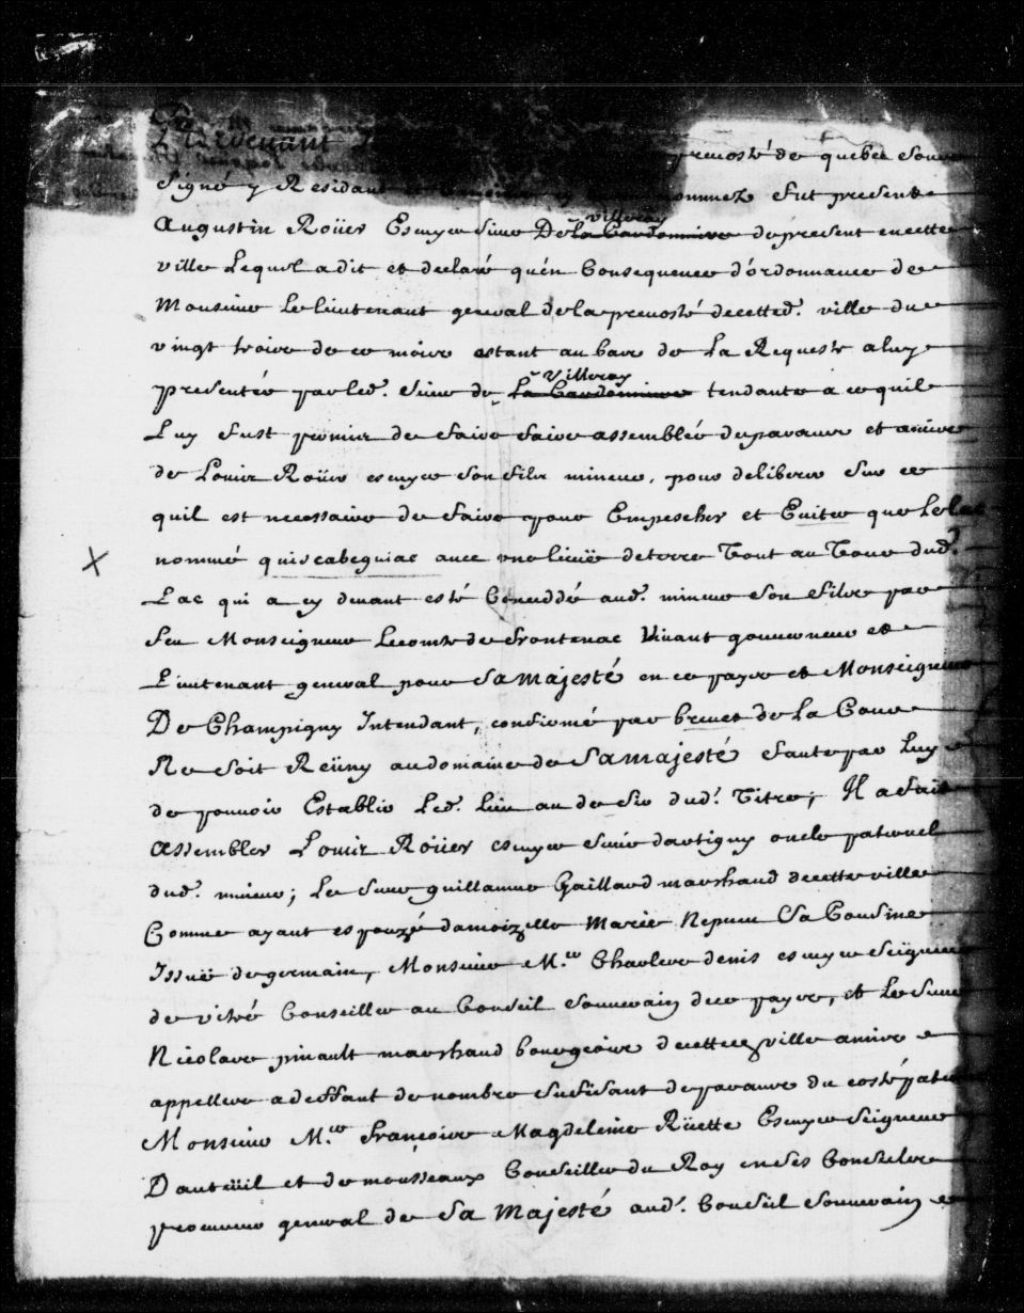 Pardevant prevosté de quebec sous
signé y Residant nommez fut presente
Augustin Roüer Escuyer sieur De la Cardonniere villeray de present en cette
ville Lequel a dit et declaré qu'en Consequence d'ordonnance de
Monsieur Le lieutenant general de la prevosté de cetted. ville du
vingt troire de ce moire estant au bas de La Requeste a luy
presentée par led. sieur de La Cardonniere Villeray tendante a ce quil
Luy fust permis de faire faire assemblée de parans et amire
de Louis Roüer escuyer son filz mineur, pour deliberer sur ce
quil est necessaire de faire pour Empescher et Euiter que Le lac
nommé quiscabequiac avec une lieuë de terre Tout au Tour dud.
Lac qui a cy devant esté Conceddé aud. mineur son filz par
feu Monseigneur Lecomte de frontenac Vivant gouverneur et
Lieutenant general pour Sa majesté en ce payre et Monseigneur
De Champigny Intendant, confirmé par brevet de La Cour
Ne soit Reüny au domaine de Sa majesté faute par Luy
de pouvoir Establir Led. lieu au desir dud. Titre, Il a fait
Assembler Louis Roüer escuyer sieur dartigny oncle paternel
dud. mineur; Le sieur guillaume Gaillard marchand de cette ville
Comme ayant espouzé damoizelle Marie Nepveu Sa Cousine
Issuë de germain, Monsieur M.re Charles denis escuyer seigneur
de vitré Conseiller au Conseil souverain de ce payre, et Le sieur
Nicolas pinault marchand bourgeoire de cette ville amire
appeller a deffaut de nombre sufisant de parans du costé pater
Monsieur M.re françoire Magdeleine Rüette Escuyer seigneur
Dauteüil et de mousseaux Conseiller du Roy en ses Conseils
procureur general de Sa Majesté aud. Conseil souverain